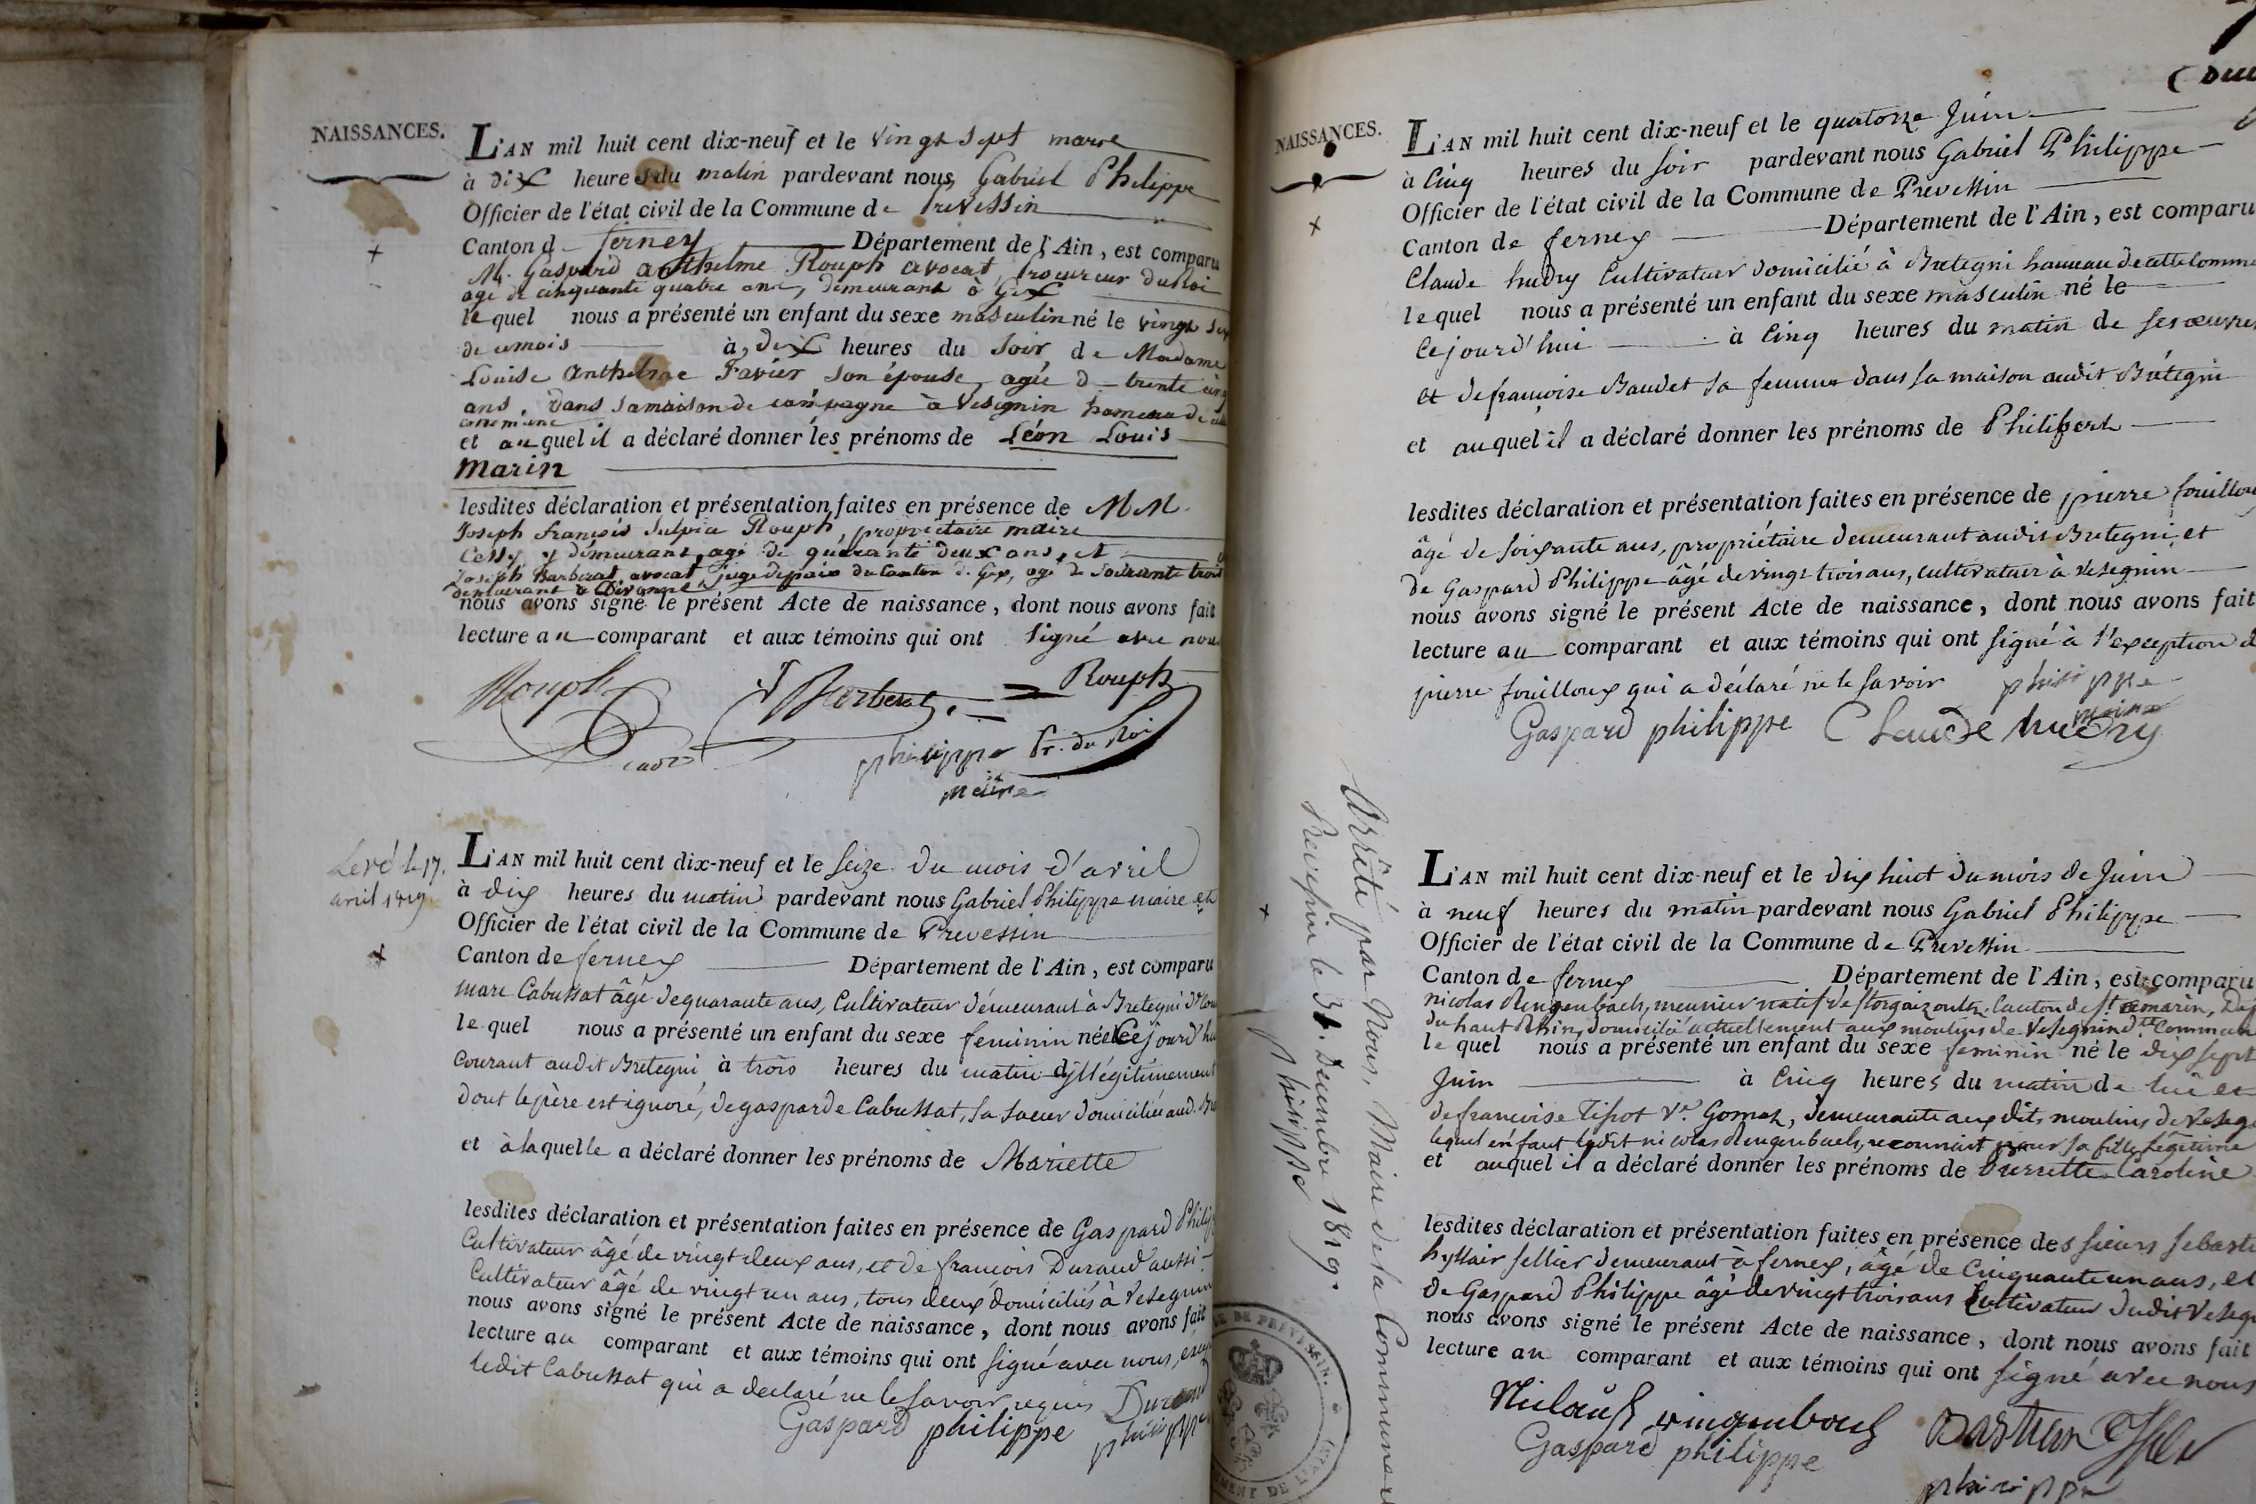 NAISSANCES.
L'AN mil huit cent dix-neuf et le vingt sept mars
à dix heures du matin pardevant nous Gabriel Philippe
Officier de l'état civil de la Commune de Prevessin
Canton de ferney Département de l'Ain, est comparu
M. Gaspard anthelme Rouph avocat, procureur du Roi
agé de cinquante quatre ans, demeurant à Gex
lequel nous a présenté un enfant du sexe masculin né le vingt
de ce mois à dix heures du soir de Madame
Louise Anthelme Favier son épouse, agée de trente cinq
ans, dans sa maison de campagne à Vesegnin hameau de
commune
et auquel il a déclaré donner les prénoms de Léon Louis
Marin
lesdites déclaration et présentation faites en présence de MM.
Joseph François Sulpice Rouph, propriétaire maire
Cessy y demeurant, agé de quarante deux ans, et
Joseph Barberat avocat, juge de paix du Canton de Gex, agé de soixante trois
demeurant à Divonne
nous avons signé le présent Acte de naissance, dont nous avons fait
lecture au comparant et aux témoins qui ont signé avec nous
Rouph J Barberat Rouph
Pr. du Roi
philippe
maire
Levé le 17.
avril 1819.
L'AN mil huit cent dix-neuf et le seize du mois d'avril
à dix heures du matin pardevant nous Gabriel Philippe maire et
Officier de l'état civil de la Commune de Prevessin
Canton de ferney Département de l'Ain, est comparu
marc Cabussat âgé de quarante ans, Cultivateur démeurant à Bretegni
lequel nous a présenté un enfant du sexe feminin née Cejourd'hui
courant audit Bretegni à trois heures du matin illégitimement
dont le père est ignoré, de gasparde Cabussat, sa soeur domiciliée aud.
et à laquelle a déclaré donner les prénoms de Mariette
lesdites déclaration et présentation faites en présence de Gaspard
Cultivateur âgé de vingt deux ans, et de francois Durand aussi
Cultivateur âgé de vingt un ans, tous deux domiciliés à Vesegnin
nous avons signé le présent Acte de naissance, dont nous avons fait
lecture au comparant et aux témoins qui ont signé avec nous,
ledit Cabussat qui a declaré ne le savoir requis Durand
Gaspard philippe philippe
NAISSANCES.
L'AN mil huit cent dix-neuf et le quatorze Juin
à Cinq heures du soir pardevant nous Gabriel Philippe
Officier de l'état civil de la Commune de Prevessin
Canton de ferney Département de l'Ain, est comparu
Claude hudry Cultivateur domicilié à Bretegni hameau de cette Commune
lequel nous a présenté un enfant du sexe masculin né le
Cejourd'hui à Cinq heures du matin de ses oeuvres
et de francoise Baudet sa femme dans sa maison audit Bretegni
et auquel il a déclaré donner les prénoms de Philibert
lesdites déclaration et présentation faites en présence de pierre fouilloux
âgé de soixante ans, propriétaire demeurant audit Bretegni, et
de Gaspard Philippe âgé de vingt trois ans, cultivateur à Vesegnin
nous avons signé le présent Acte de naissance, dont nous avons fait
lecture au comparant et aux témoins qui ont signé à l'exception de
pierre fouilloux qui a déclaré ne le savoir philippe
maire
Gaspard philippe Claude hudry
L'AN mil huit cent dix-neuf et le dix huit du mois de Juin
à neuf heures du matin pardevant nous Gabriel Philippe
Officier de l'état civil de la Commune de Prevessin
Canton de ferney Département de l'Ain, est comparu
nicolas Ringenbach, meunier natif de Canton de St. amarin,
du haut Rhin, domicilié actuellement aux moulins de Vesegnin dte. Commune
lequel nous a présenté un enfant du sexe feminin né le dix sept
Juin à Cinq heures du matin de lui et
de francoise Tissot Ve. Gomas, demeurante aux dits moulins de
lequel enfant ledit nicolas Ringenbach, reconnait pour sa fille Légitime
et auquel il a déclaré donner les prénoms de Pierrette Caroline
lesdites déclaration et présentation faites en présence des sieurs
sellier demeurant à ferney, âgé de Cinquante un ans, et
de Gaspard Philippe âgé de vingt trois ans Cultivateur dudit
nous avons signé le présent Acte de naissance, dont nous avons fait
lecture au comparant et aux témoins qui ont signé avec nous
Gaspard philippe
philippe
Arrêté par Nous, Maire de la Commune
Prevessin le 31. Decembre 1819.
philippe
DE PREVESSIN.
DE L'AIN